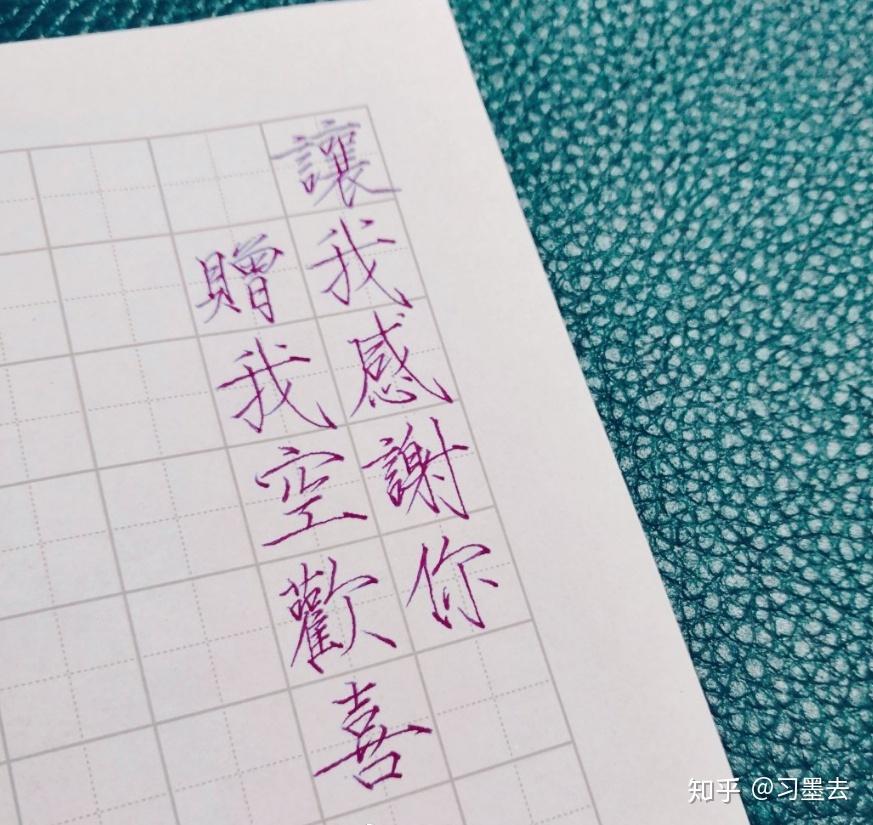 讓我感謝你
贈我空歡喜
知乎 @习墨去